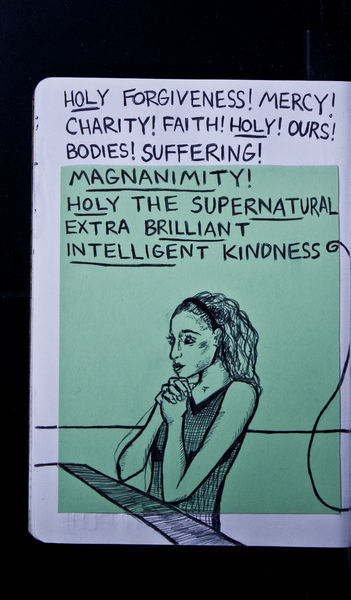 HOLY FORGIVENESS! MERCY!
CHARITY! FAITH! HOLY! OURS!
BODIES! SUFFERING!
MAGNANIMITY!
HOLY THE SUPERNATURAL
EXTRA BRILLIANT
INTELLIGENT KINDNESS